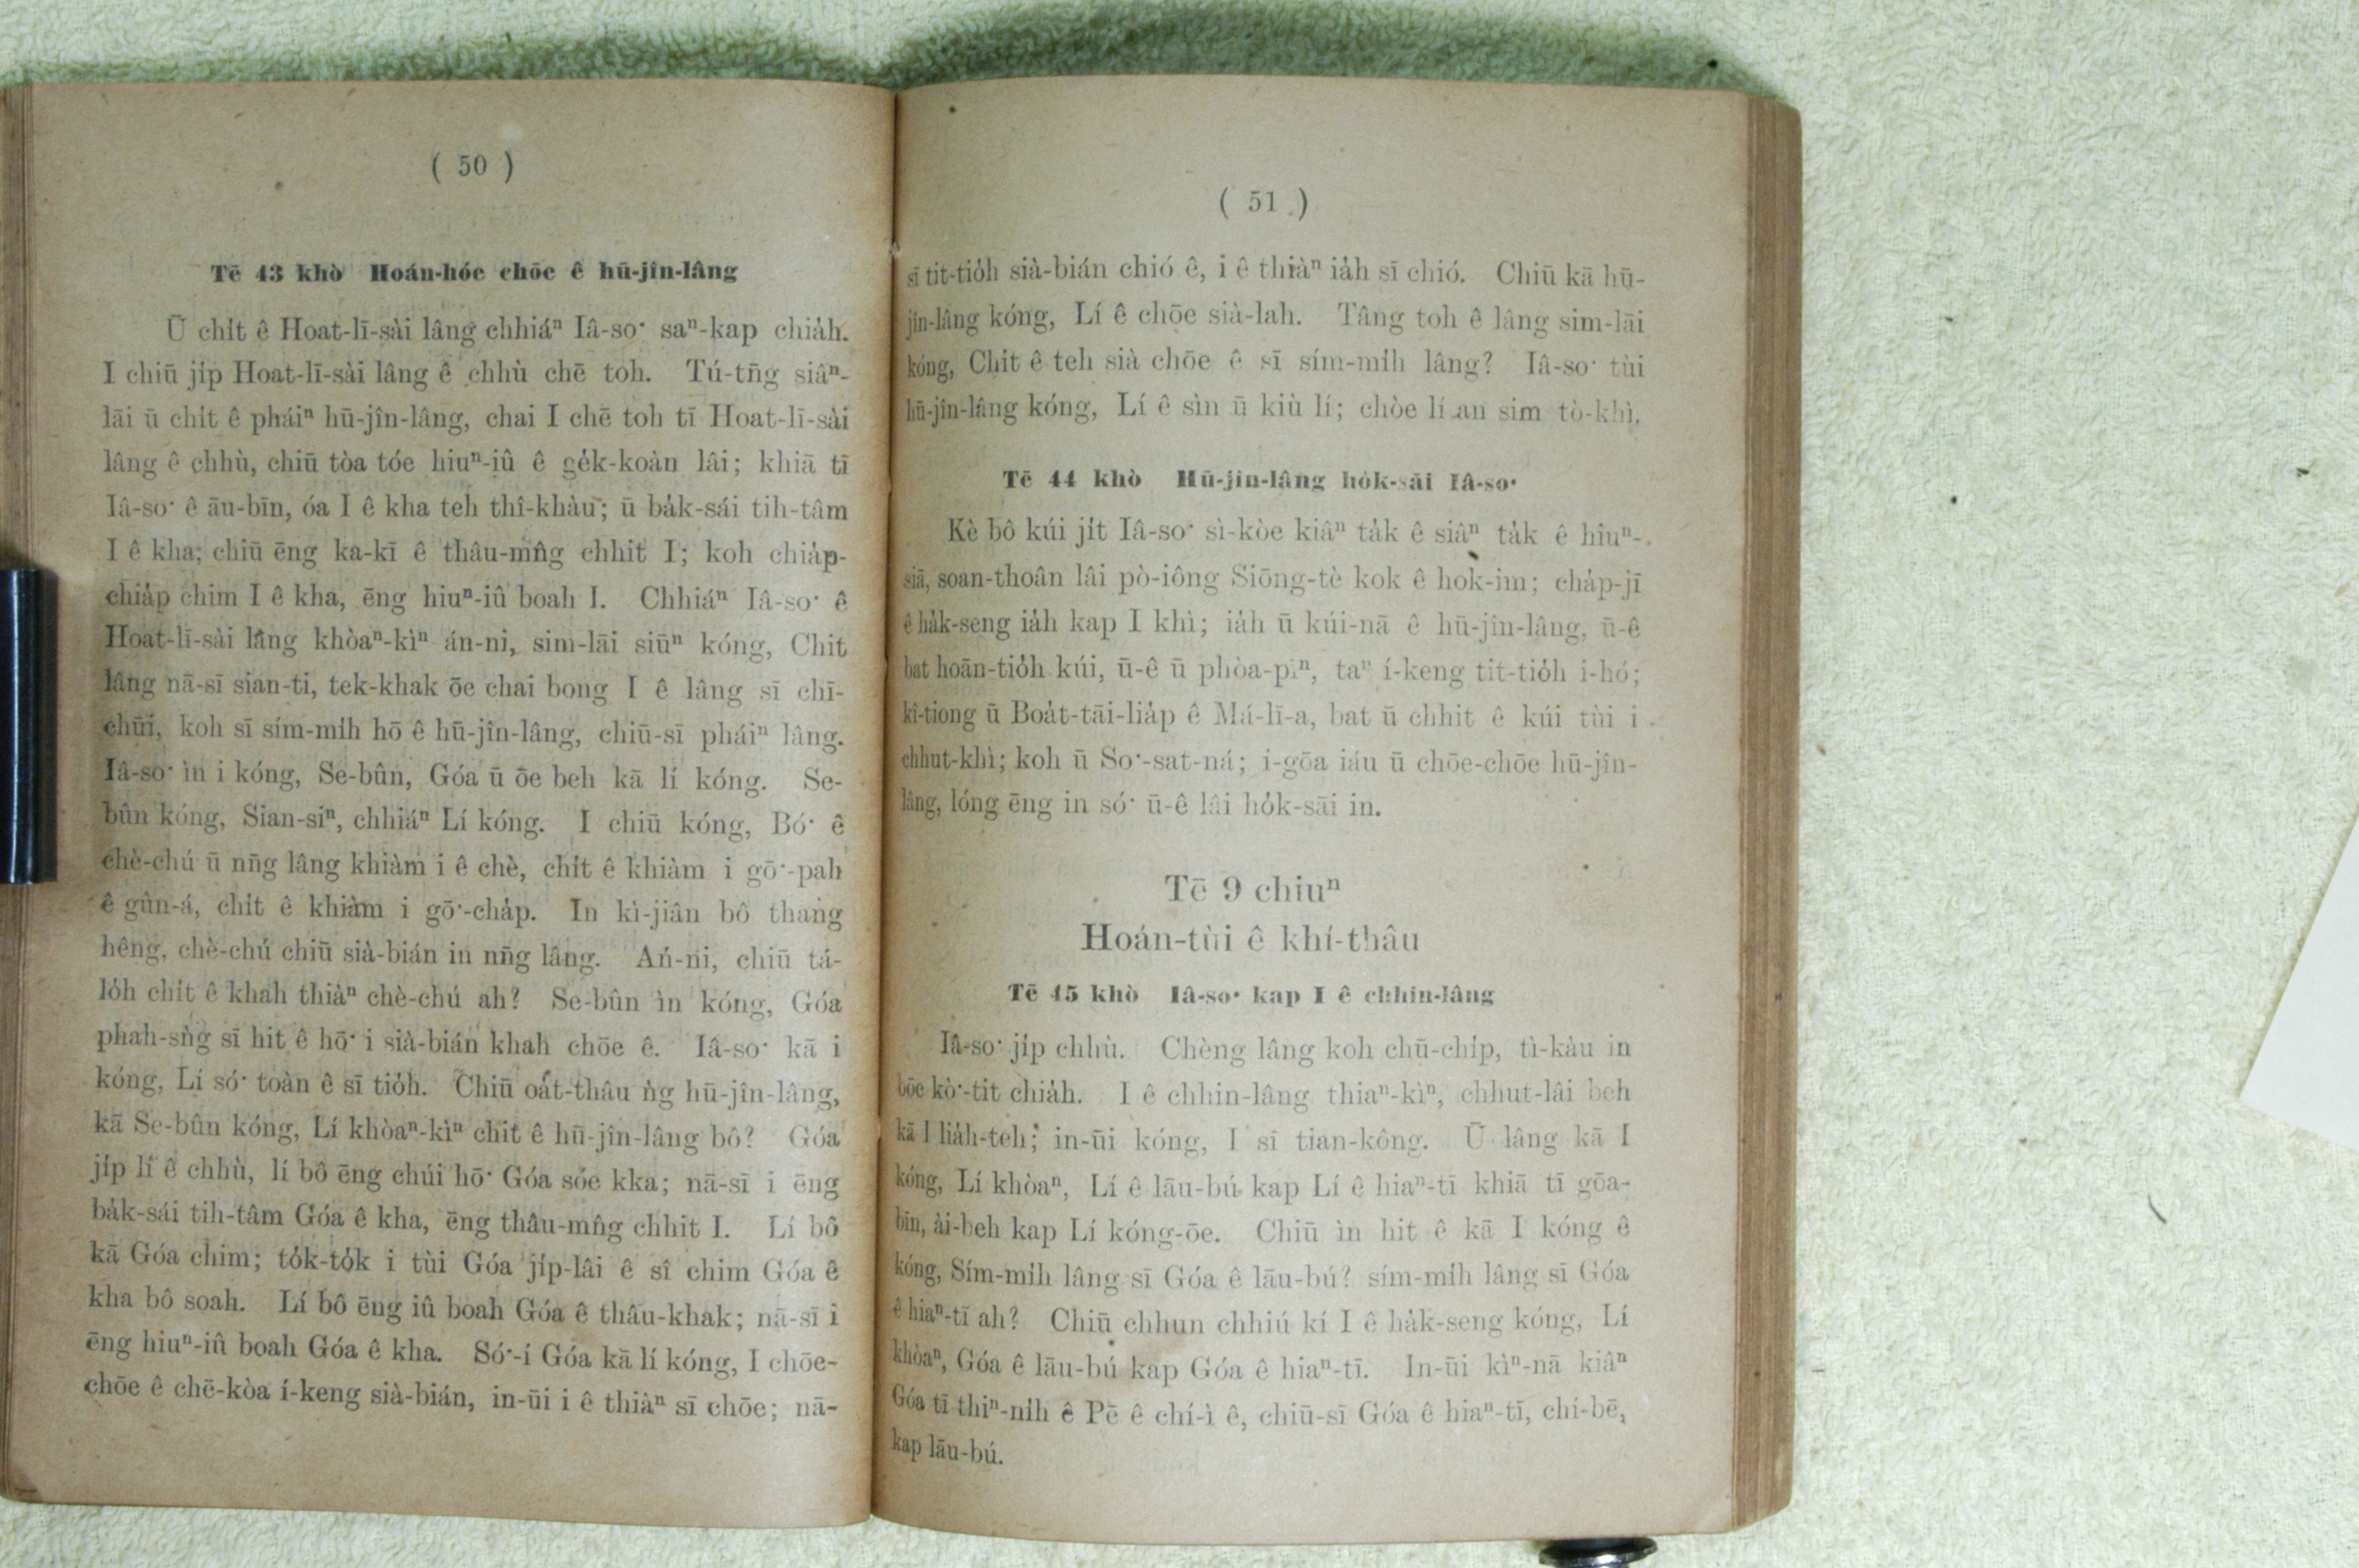 ( 50 )
Tē 43 khò Hoán-hóe chōe ê hū-jîn-lâng
Ū chi̍t ê Hoat-lī-sài lâng chhiáⁿ Iâ-so͘ saⁿ-kap chia̍h.
I chiū ji̍p Hoat-lī-sài lâng ê chhù chē toh. Tú-tn̄g siâⁿ-
lāi ū chi̍t ê pháiⁿ hū-jîn-lâng, chai I chē toh tī Hoat-lī-sài
lâng ê chhù, chiū tòa tóe hiuⁿ-iû ê ge̍k-koàn lâi; khiā tī
Iâ-so͘ ê āu-bīn, óa I ê kha teh thî-khàu; ū ba̍k-sái tih-tâm
I ê kha; chiū ēng ka-kī ê thâu-mn̂g chhit I; koh chia̍p-
chia̍p chim I ê kha, ēng hiuⁿ-iû boah I. Chhiáⁿ Iâ-so͘ ê
Hoat-lī-sài lâng khòaⁿ-kìⁿ án-ni, sim-lāi siūⁿ kóng, Chit
lâng nā-sī sian-ti, tek-khak ōe chai bong I ê lâng sī chī-
chūi, koh sī sím-mi̍h hō ê hū-jîn-lâng, chiū-sī pháiⁿ lâng.
Iâ-so͘ ìn i kóng, Se-bûn, Góa ū ōe beh kā lí kóng. Se-
bûn kóng, Sian-siⁿ, chhiáⁿ Lí kóng. I chiū kóng, Bó͘ ê
chè-chú ū nn̄g lâng khiàm i ê chè, chi̍t ê khiàm i gō͘-pah
ê gûn-á, chi̍t ê khiàm i gō͘-cha̍p. In kì-jiân bô thang
hêng, chè-chú chiū sià-bián in nn̄g lâng. Án-ni, chiū tá-
lo̍h chi̍t ê khah thiàⁿ chè-chú ah? Se-bûn ìn kóng, Góa
phah-sǹg sī hit ê hō͘ i sià-bián khah chōe ê. Iâ-so͘ kā i
kóng, Lí só͘ toàn ê sī tio̍h. Chiū oát-thâu ǹg hū-jîn-lâng,
kā Se-bûn kóng, Lí khòaⁿ-kìⁿ chit ê hū-jîn-lâng bô? Góa
ji̍p lí ê chhù, lí bô ēng chúi hō͘ Góa sóe kka; nā-sī i ēng
ba̍k-sái tih-tâm Góa ê kha, ēng thâu-mn̂g chhit I. Lí bô
kā Góa chim; to̍k-to̍k i tùi Góa ji̍p-lâi ê sî chim Góa ê
kha bô soah. Lí bô ēng iû boah Góa ê thâu-khak; nā-sī i
ēng hiuⁿ-iû boah Góa ê kha. Só͘-í Góa kā lí kóng, I chōe-
chōe ê chē-kòa í-keng sià-bián, in-ūi i ê thiàⁿ sī chōe; nā-
( 51 )
sī tit-tio̍h sià-bián chió ê, i ê thiàⁿ ia̍h sī chió. Chiū kā hū-
jîn-lâng kóng, Lí ê chōe sià-lah. Tâng toh ê lâng sim-lāi
kóng, Chit ê teh sià chōe ê sī sím-mi̍h lâng? Iâ-so͘ tùi
hū-jîn-lâng kóng, Lí ê sìn ū kiù lí; chòe lí an sim tò-khì.
Tē 44 khò Hū-jîn-lâng ho̍k-sāi Iâ-so͘
Kè bô kúi ji̍t Iâ-so͘ sì-kòe kiâⁿ ta̍k ê siâⁿ ta̍k ê hiuⁿ-
siā, soan-thoân lâi pò-iông Siōng-tè kok ê hok-im; cha̍p-jī
ê ha̍k-seng ia̍h kap I khì; ia̍h ū kúi-nā ê hū-jîn-lâng, ū-ê
bat hoān-tio̍h kúi, ū-ê ū phòa-pīⁿ, taⁿ í-keng tit-tio̍h i-hó;
kî-tiong ū Boa̍t-tāi-lia̍p ê Má-lī-a, bat ū chhit ê kúi tùi i
chhut-khì; koh ū So͘-sat-ná; í-gōa iáu ū chōe-chōe hū-jîn-
lâng, lóng ēng in só͘ ū-ê lâi ho̍k-sāi in.
Tē 9 chiuⁿ
Hoán-tùi ê khí-thâu
Tē 45 khò Iâ-so͘ kap I ê chhin-lâng
Iâ-so͘ ji̍p chhù. Chèng lâng koh chū-chi̍p, tì-kàu in
bōe kò͘-tit chia̍h. I ê chhin-lâng thiaⁿ-kìⁿ, chhut-lâi beh
kā I lia̍h-teh; in-ūi kóng, I sī tian-kông. Ū lâng kā I
kóng, Lí khòaⁿ, Lí ê lāu-bú kap Lí ê hiaⁿ-tī khiā tī gōa-
bīn, ài-beh kap Lí kóng-ōe. Chiū ìn hit ê kā I kóng ê
kóng, Sím-mi̍h lâng sī Góa ê lāu-bú? sím-mi̍h lâng sī Góa
ê hiaⁿ-tī ah? Chiū chhun chhiú kí I ê ha̍k-seng kóng, Lí
khòaⁿ, Góa ê lāu-bú kap Góa ê hiaⁿ-tī. In-ūi kìⁿ-nā kiâⁿ
Góa tī thiⁿ-ni̍h ê Pē ê chí-ì ê, chiū-sī Góa ê hiaⁿ-tī, chí-bē,
kap lāu-bú.